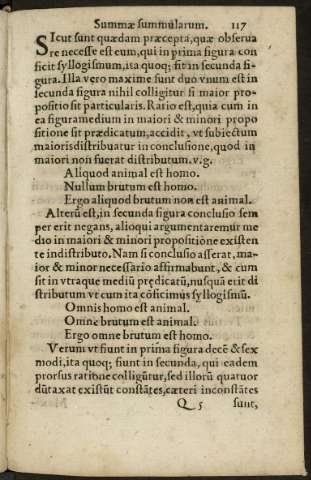 Summæ summularum. 117
SIcut sunt quædam præcepta, quæ obserua
re necesse est eum, qui in prima figura con
ficit syllogismum, ita quoq; fit in secunda fi-
gura. Illa vero maxime sunt duo vnum est in
secunda figura nihil colligitur si maior pro-
positio sit particularis. Ratio est, quia cum in
ea figura medium in maiori & minori propo
sitione sit prædicatum, accidit, vt subiectum
maioris distribuatur in conclusione, quod in
maiori non fuerat distributum. v. g.
Aliquod animal est homo.
Nullum brutum est homo.
Ergo aliquod brutum non est animal.
Alterũ est, in secunda figura conclusio sem
per erit negans, alioqui argumentaremur me
dio in maiori & minori propositiõne existen
te indistributo. Nam si conclusio asserat, ma-
ior & minor necessario affirmabunt, & cum
sit in vtraque mediũ prędicatũ, nusquã erit di
stributum vt cum ita cõficimus syllogismũ.
Omnis homo est animal.
Omne brutum est animal.
Ergo omne brutum est homo.
Verum vt fiunt in prima figura decẽ & sex
modi, ita quoq; fiunt in secunda, qui eadem
prorsus ratione colligũtur, sed illorũ quatuor
dũtaxat existũt constãtes, cæteri inconstãtes
Q 5 sunt,